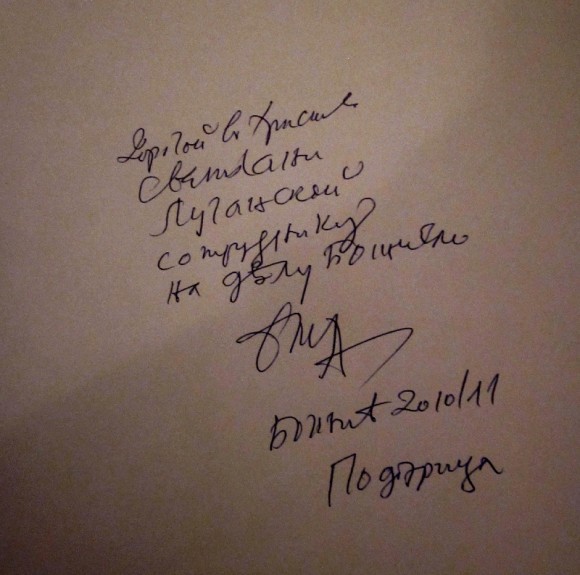 Дорогой в Христе
Светлани
Луганской
сотруднику
на дѣлу Божиѣмо
Божић 2010/11
Подгорица